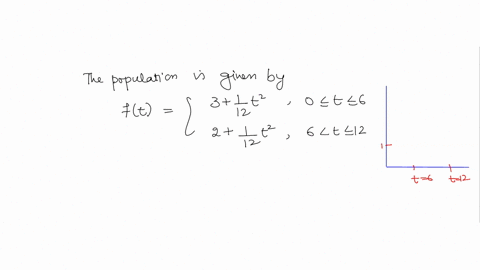 The population is given by
f(t) = { 3 + 1/12 t², 0 ≤ t ≤ 6
2 + 1/12 t², 6 < t ≤ 12
1
t=6 t=12